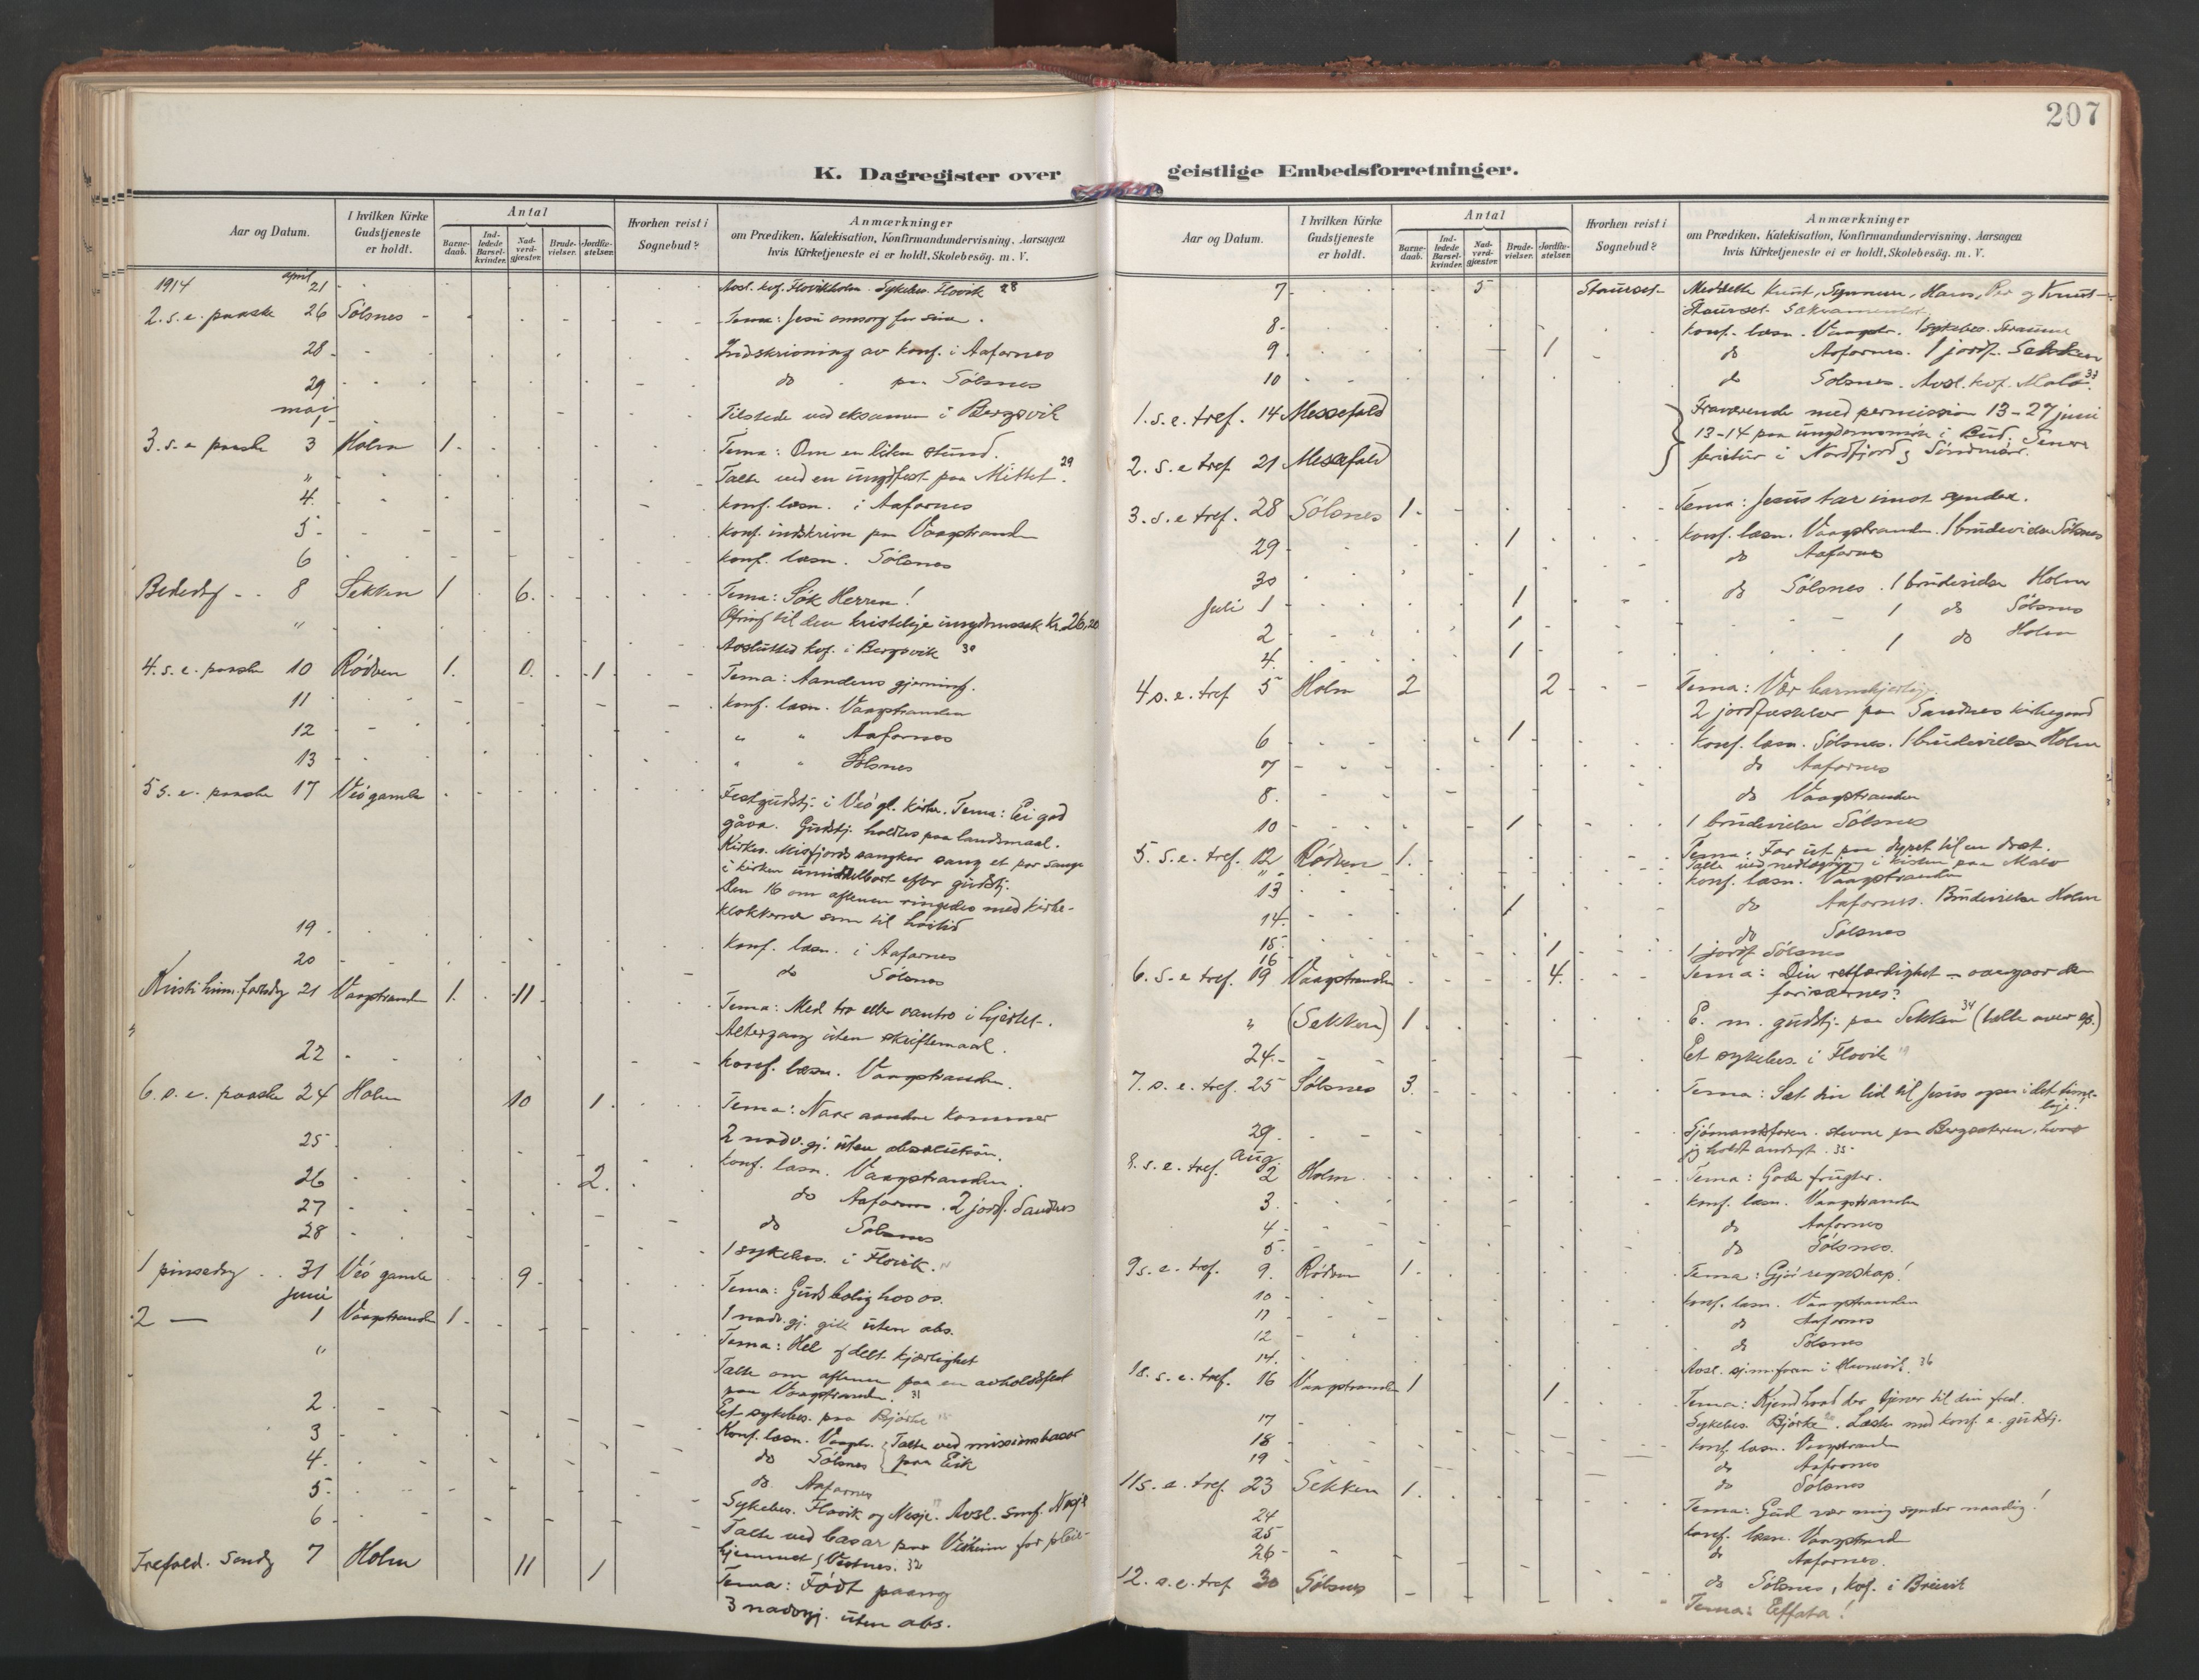 207
K. Dagregister over geistlige Embedsforretninger.
Aar og Datum. I hvilken Kirke Gudstjeneste er holdt. Antal Barne-daab. Ind-ledede Barsel-kvinder. Nad-verd-gjæster. Brude-vielser. Jordfæ-stelser. Hvorhen reist i Sognebud? Anmærkninger om Prædiken, Katekisation, Konfirmandundervisning. Aarsagen hvis Kirketjeneste ei er holdt. Skolebesög. m. V.
1914 april 21 Avsl. kof. Flovikholm. Sykebes. Flovik 28
2. s. e. paaske 26 Sölsnes Tema: Jesu omsorg for sine.
28 Indskrivning av konf. i Aafarnes
29 do paa Sölsnes
maj Tilstede ved eksamen i Bergsvik
3. s. e paaske 3 Holm 1 Tema: Om en liden stund.
" Talte ved en ungdfest paa Mittet. 29
4. konf. læsn. i Aafarnes
5 konf. indskrivn paa Vaagstranden
6 konf. læsn. Sölsnes
Bededag 8 Sekken 1 6. Tema: Søk Herren!
" Ofring til den kristelige ungdomssak Kr. 26,20
Avslutted kof. i Bergsvik 30
4. s. e. paaske 10 Rödven 1. 0. 1 Tema: Aandens gjerning.
11 konf. læsn. Vaagstranden
12 " " Aafarnes
13 " " Sölsnes
5 s. e. paaske 17 Veö gamle Festgudstj. i Veö gl. kirke. Tema: Ei god
gåva. Gudstj. holdtes paa landsmaal.
Kirkes. Misfjords sangkor sang et par sange
i kirken umiddelbart efter gudstj.
Den 16 om aftenen ringedes med kirke-
klokkerne som til høitid
19 konf. læsn. i Aafarnes
20 do Sölsnes
Kristi him. fartsdag 21 Vaagstranden 1. 11 Tema: Med tro eller vantro i hjertet.
" Altergang uten skriftemaal.
22 konf. læsn. Vaagstranden.
6. s. e. paaske 24 Holm 10 1. Tema: Naar aanden kommer
2 nadv. gj. uten absolution.
25 konf. læsn. Vaagstranden.
26 2. do Aafarnes. 2 jordf. Sandnes
27 do Sölsnes
28 1 sykebes. i Flovik.
1 pinsedag 31 Veö gamle 9 Tema: Guds bolig hos os.
1 nadv. gj. gik uten abs.
2 — juni 1 Vaagstranden 1 Tema: Hel og delt kjærlighet
" Talte om aftenen paa en avholdsfest
paa Vaagstranden. 31
2. Et sykebes. paa Bjørke
3 Konf. læsn. Vaagstr. Talte ved missionsbasar
4. do Sölsnes paa Eik
5. do. Aafarnes
6 Sykebes. Flovik og Nesje. Avsl. smf. Nesje
Talte ved basar paa Vidheim for pleie-
hjemmet i Vestnes. 32
Trefold. söndg 7 Holm 11 1 Tema: Født paany
3 nadvgj. uten abs.
7 5 Staurset Meddelte Knut, Synnøve, Hans, Per og Knut
Staurset. Sakramentet.
8 konf. læsn. Vaagstr. 1 sykebes. Straume
9 1 do Aafarnes. 1 jordf. Sekken
10 do Sölsnes. Avsl. kof. Malo 33
1. s. e. tref. 14 Messefald Fraværende med permission 13-27 juni
13-14 paa ungdomsmöte i Bud. Senere
2. s. e tref 21 Messefald ferietur i Nordfjord og Söndmör.
3. s. e tref. 28 Sölsnes 1 Tema: Jesus tar imot syndere.
29 1 konf. læsn. Vaagstranden. 1 brudevielse Sölsnes
30 do Aafarnes
Juli 1 1 do Sölsnes. 1 brudevielse Holm
2 1 1 do Sölsnes
4. 1 1 do Holm
4 s. e. tref 5 Holm 2 2 Tema: Vær barmhjertige.
2 jordfæstelser paa Sandnes kirkegaard
6 1 konf. læsn. Sölsnes. 1 brudevielse Holm
7 do Aafarnes
8. do Vaagstranden
10 1 1 brudevielse Sölsnes
5. s. e. tref. 12 Rödven 1. Tema: Far ut paa dypet til en dræt.
" Talte ved nedlægging i kisten paa Malo
13 konf. læsn. Vaagstranden
14 1 do Aafarnes. Brudevielse Holm
15 do Sölsnes
16 1 1 jordf Sölsnes
6. s. e tref. 19 Vaagstranden 4. Tema: Din retfærdighet — overgaar den
farisæernes?
" (Sekken) 1 E. m. gudstj. paa Sekken 34 (talte over ep.)
24. Et sykebes. i Flovik
7. s. e. tref. 25 Sölsnes 3. Tema: Sæt din lid til Jesus ogsaa i det time-
lige!
29. Sjömandsforen. stevne paa Bergsæteren, hvor
jeg holdt andagt. 35
8. s. e. tref. Aug. 2 Holm Tema: Gode frugter.
3. konf. læsn. Vaagstranden
4 do Aafarnes
5. do Sölsnes.
9 s. e. tref. 9. Rödven 1. Tema: Gjör regnskap!
10 konf. læsn. Vaagstranden
11 do Aafarnes
12 do Sölsnes
14. Avsl. 36
10. s. e. tref. 16 Vaagstranden 1 1 Tema: Kjend hvad der tjener til din fred.
Sykebes. Bjørke. Læste med konf. e. gudstj.
17 konf. læsn. Vaagstranden
18 do Aafarnes
19 do Sölsnes
11 s. e. tref. 23 Sekken 1. Tema: Gud vær mig synder naadig!
24 konf. læsn. Vaagstrand
25 do Aafarnes.
26 do Sölsnes, kof. i Breivik
12. s. e. tref 30 Sölsnes Tema: Effata!